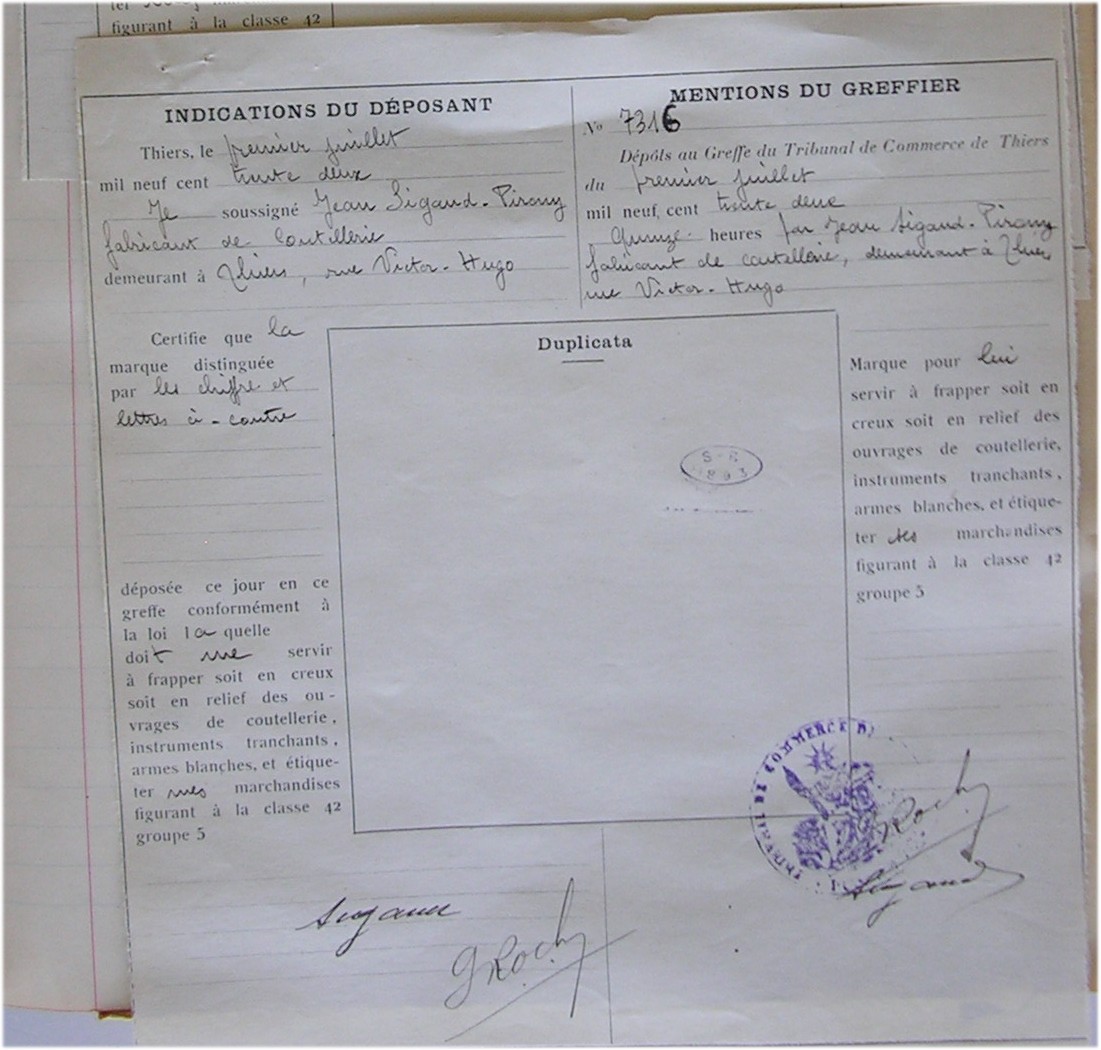 figurant à la classe 42
INDICATIONS DU DÉPOSANT
Thiers, le premier juillet
mil neuf cent trente deux
Je soussigné Jean Sigaud-Pirony
fabricant de Coutellerie
demeurant à Thiers, rue Victor-Hugo
MENTIONS DU GREFFIER
No 7316
Dépôts au Greffe du Tribunal de Commerce de Thiers
du premier juillet
mil neuf cent trente deux
Quinze heures par Jean Sigaud-Pirony
fabricant de coutellerie, demeurant à Thiers
rue Victor-Hugo
Certifie que la
marque distinguée
par les chiffre et
lettres ci-contre
déposée ce jour en ce
greffe conformément à
la loi la quelle
doit me servir
à frapper soit en creux
soit en relief des ou-
vrages de coutellerie,
instruments tranchants,
armes blanches, et étique-
ter mes marchandises
figurant à la classe 42
groupe 5
Duplicata
S-R
1893
Marque pour lui
servir à frapper soit en
creux soit en relief des
ouvrages de coutellerie,
instruments tranchants,
armes blanches, et étique-
ter ses marchandises
figurant à la classe 42
groupe 5
TRIBUNAL DE COMMERCE DE
GRoch
Sigaud
Sigaud
GRoch